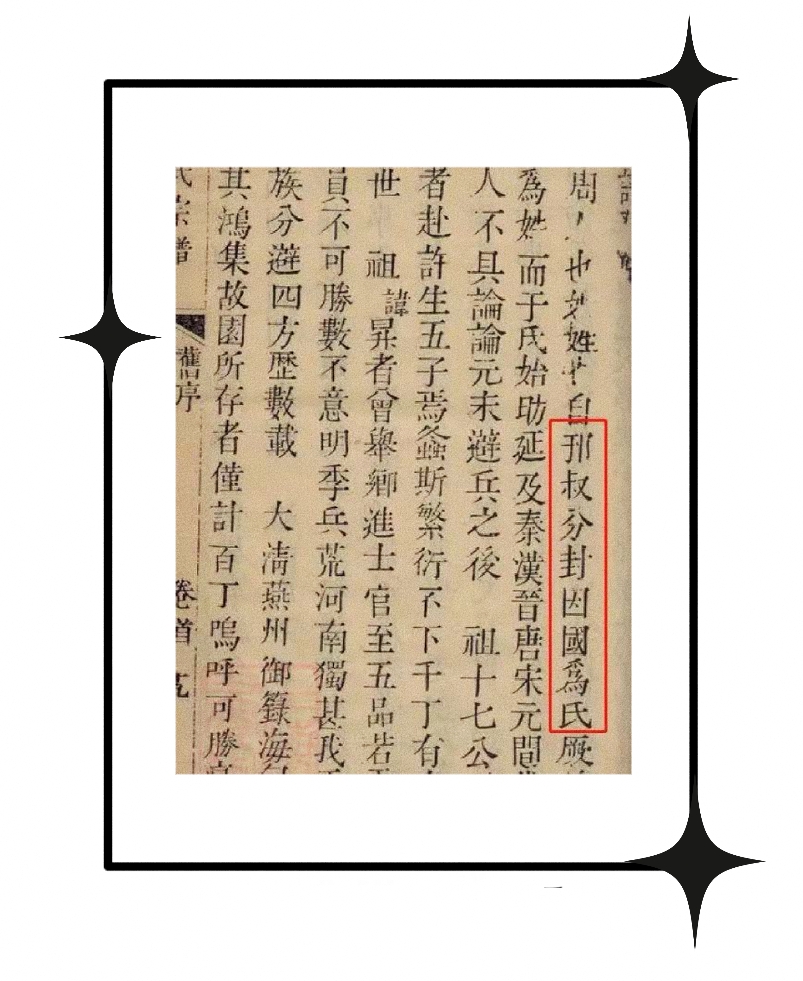 周也姓自邘叔分封因國爲氏厥
為姓而于氏始助延及秦漢晉唐宋元間
人不具論論元末避兵之後 祖十七公
者赴許生五子焉螽斯繁衍不下千丁有
世 祖諱昇者曾舉鄉進士官至五品若
員不可勝數不意明季兵荒河南獨甚我
族分避四方歷數載 大清燕州御籙海
其鴻集故園所存者僅計百丁嗚呼可勝
氏宗譜 舊序 卷首